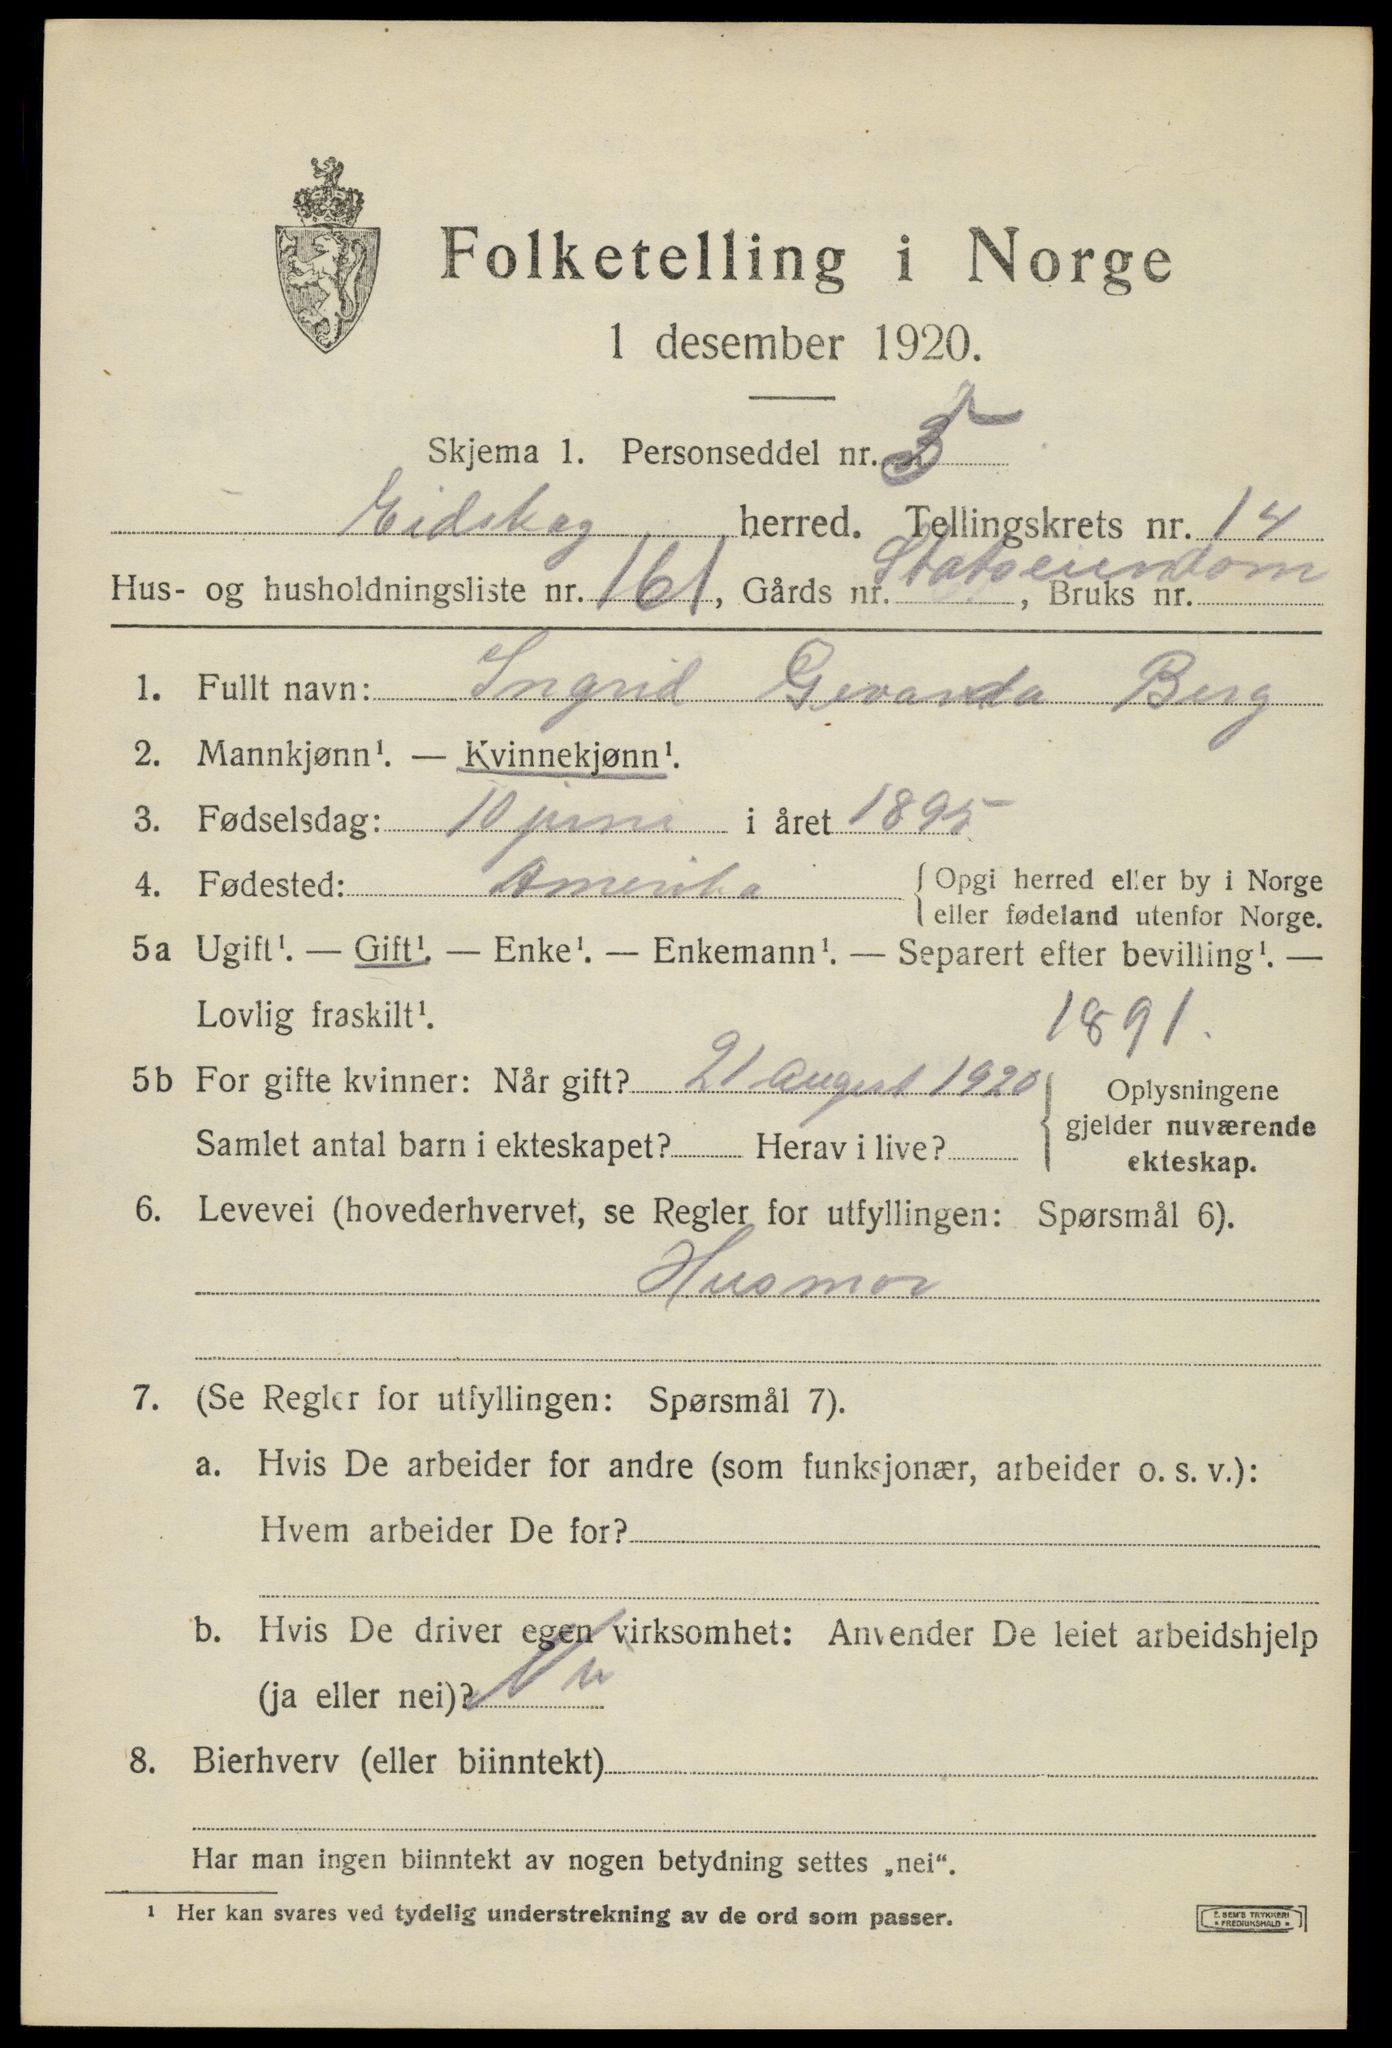 Folketelling i Norge
1 desember 1920.
Skjema 1. Personseddel nr. 5
Eidskog herred. Tellingskrets nr. 14
Hus- og husholdningsliste nr. 161, Gårds nr. Statseiendom, Bruks nr.
1. Fullt navn: Ingrid Gevanda Berg
2. Mannkjønn¹. — Kvinnekjønn¹.
3. Fødselsdag: 10 juni i året 1895
4. Fødested: Amerika {Opgi herred eller by i Norge
eller fødeland utenfor Norge.
5a Ugift¹. — Gift¹. — Enke¹. — Enkemann¹. — Separert efter bevilling¹. —
Lovlig fraskilt¹.
1891.
5b For gifte kvinner: Når gift? 21 August 1920
Samlet antal barn i ekteskapet? Herav i live?
{Oplysningene
gjelder nuværende
ekteskap.
6. Levevei (hovederhvervet, se Regler for utfyllingen: Spørsmål 6).
Husmor
7. (Se Regler for utfyllingen: Spørsmål 7).
a. Hvis De arbeider for andre (som funksjonær, arbeider o. s. v.):
Hvem arbeider De for?
b. Hvis De driver egen virksomhet: Anvender De leiet arbeidshjelp
(ja eller nei)?
8. Bierhverv (eller biinntekt)
Har man ingen biinntekt av nogen betydning settes „nei“.
¹ Her kan svares ved tydelig understrekning av de ord som passer.
E. SEM'S TRYKKERI
• FREDRIKSHALD •